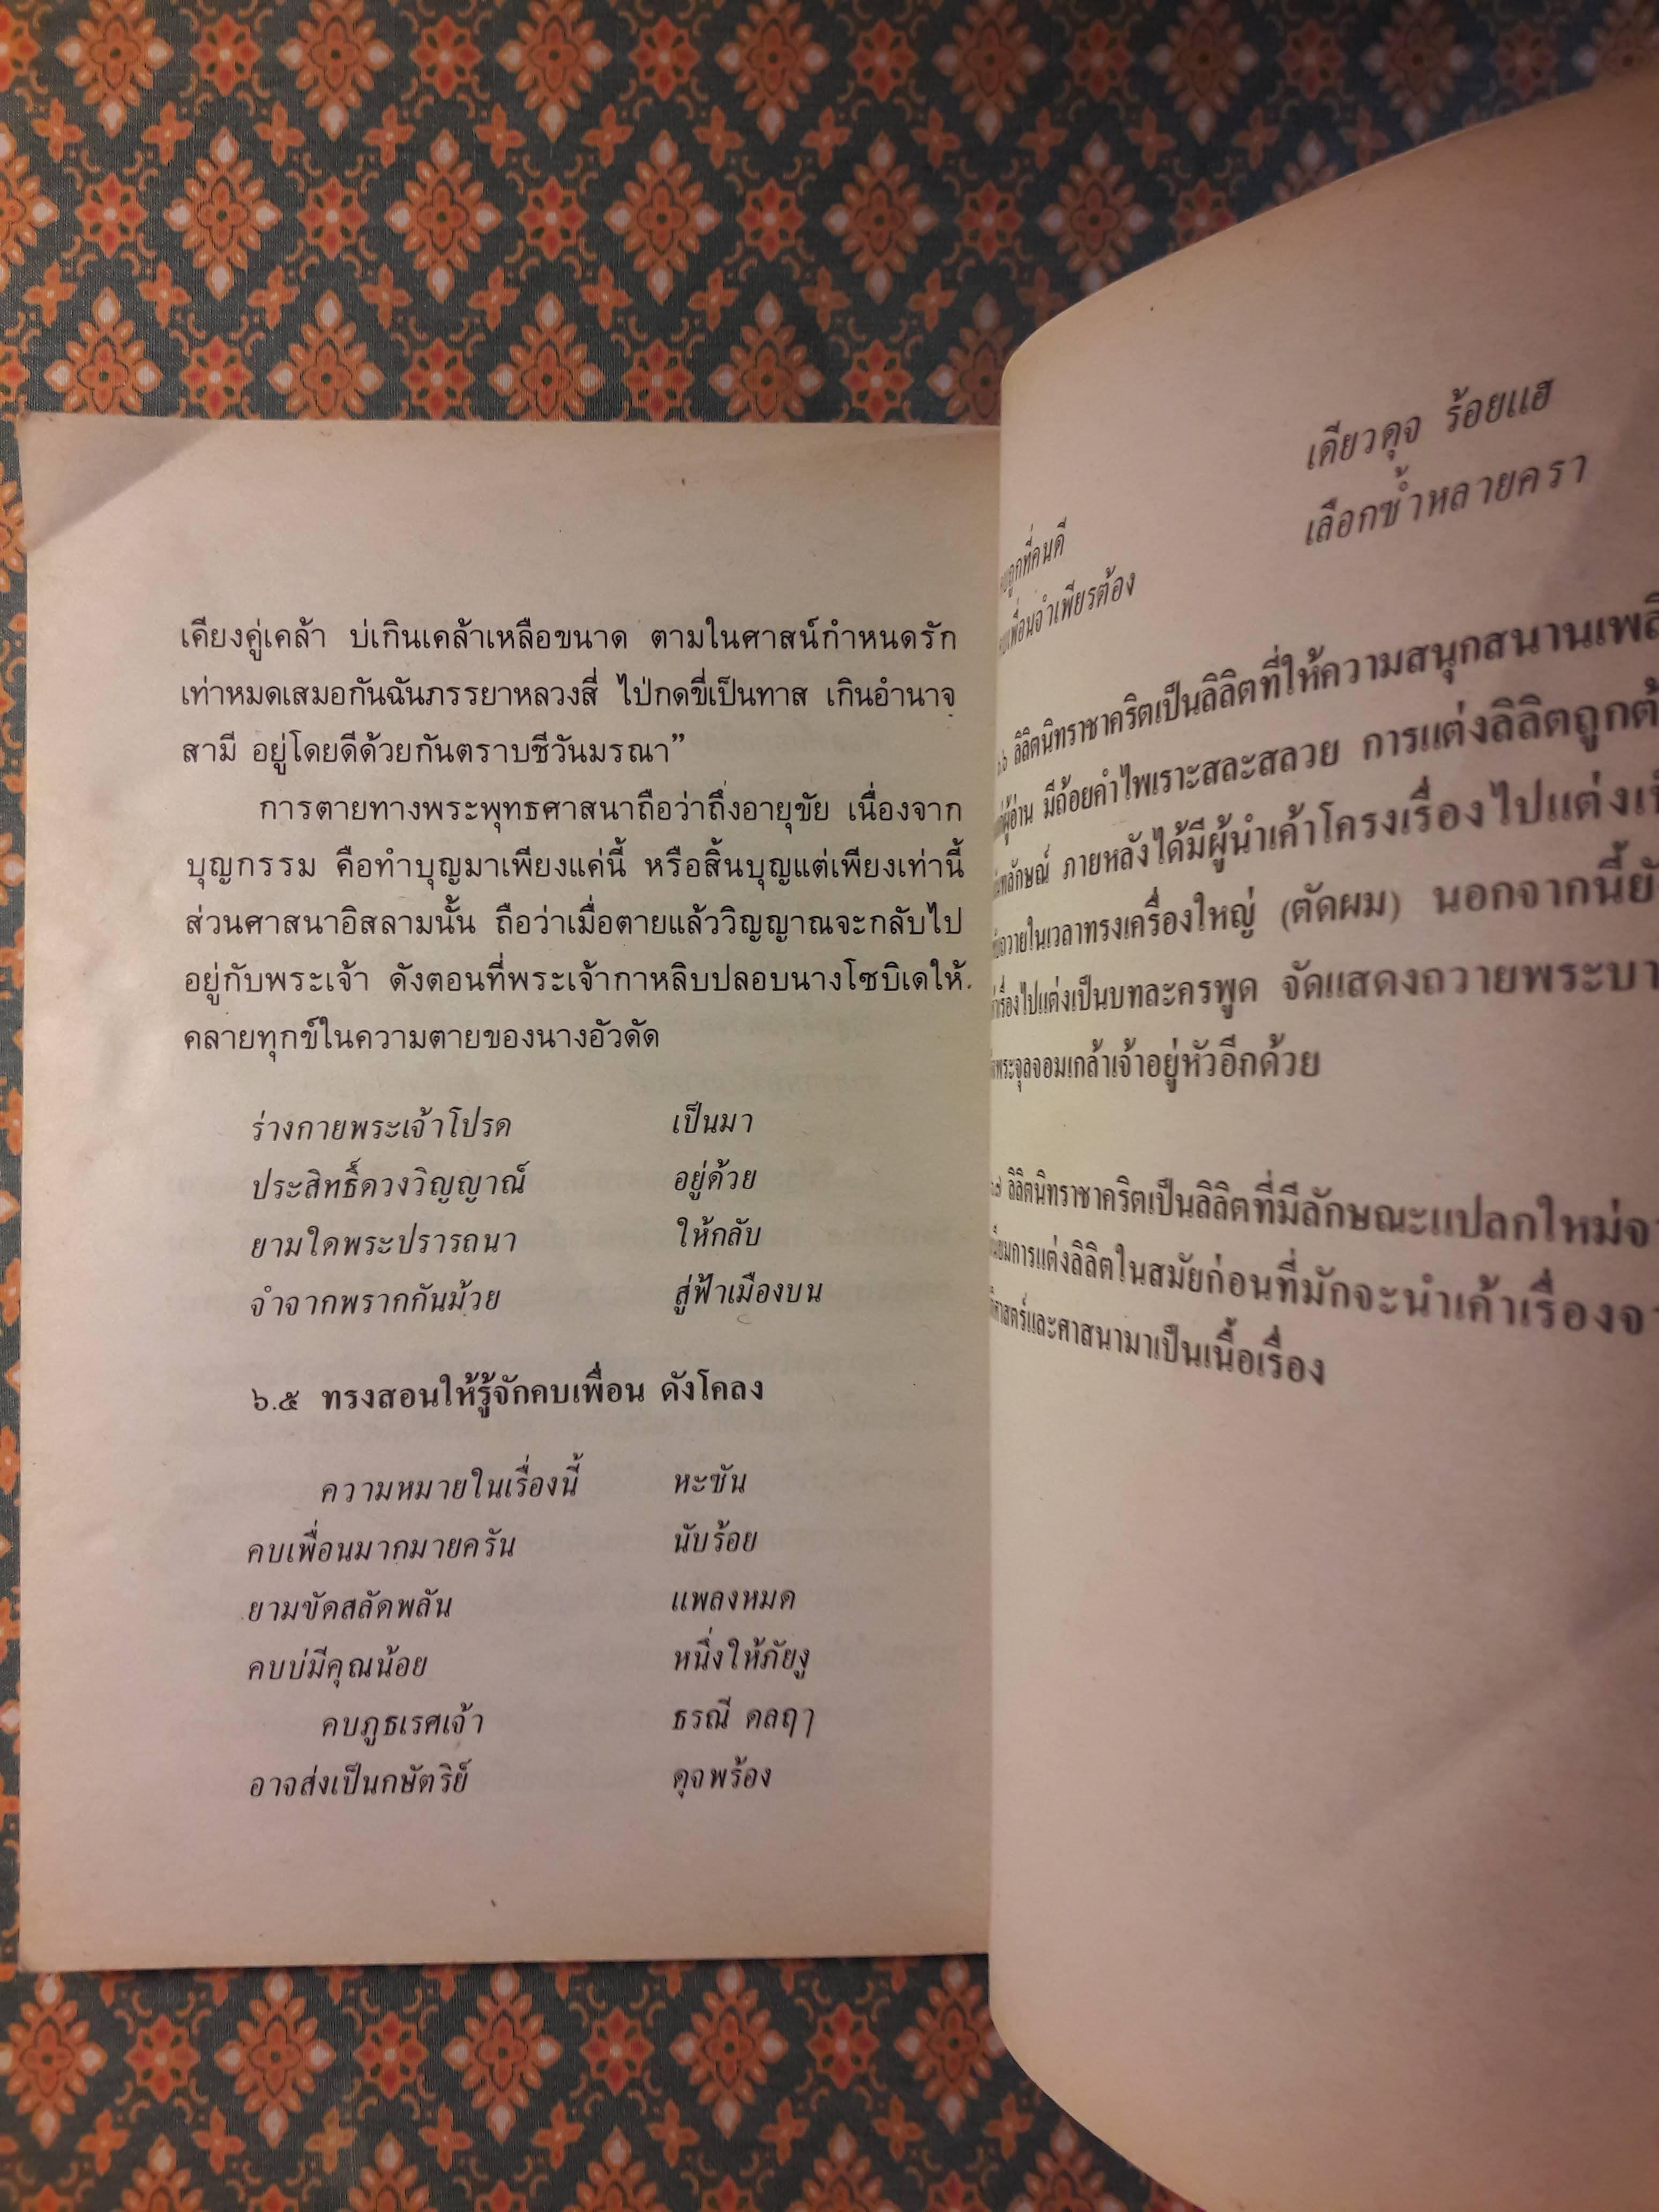 เคียงคู่เคล้า บ่เกินเคล้าเหลือขนาด ตามในศาสน์กำหนดรัก
เท่าหมดเสมอกันฉันภรรยาหลวงสี่ ไป่กดขี่เป็นทาส เกินอำนาจ
สามี อยู่โดยดีด้วยกันตราบชีวันมรณา”
การตายทางพระพุทธศาสนาถือว่าถึงอายุขัย เนื่องจาก
บุญกรรม คือทำบุญมาเพียงแค่นี้ หรือสิ้นบุญแต่เพียงเท่านี้
ส่วนศาสนาอิสลามนั้น ถือว่าเมื่อตายแล้ววิญญาณจะกลับไป
อยู่กับพระเจ้า ดังตอนที่พระเจ้ากาหลิบปลอบนางโซบิเดให้
คลายทุกข์ในความตายของนางอัวดัด
ร่างกายพระเจ้าโปรด เป็นมา
ประสิทธิ์ดวงวิญญาณ์ อยู่ด้วย
ยามใดพระปรารถนา ให้กลับ
จำจากพรากกันม้วย สู่ฟ้าเมืองบน
๖.๕ ทรงสอนให้รู้จักคบเพื่อน ดังโคลง
ความหมายในเรื่องนี้ หะซัน
คบเพื่อนมากมายครัน นับร้อย
ยามขัดสลัดพลัน แพลงหมด
คบบ่มีคุณน้อย หนึ่งให้ภัยงู
คบภูธเรศเจ้า ธรณี ดลฤๅ
อาจส่งเป็นกษัตริย์ ดุจพร้อง
ถูกที่คนดี เดียวดุจ ร้อยแฮ
เพื่อนจำเพียรต้อง เลือกซ้ำหลายครา
ลิลิตนิทราชาคริตเป็นลิลิตที่ให้ความสนุกสนาน
ผู้อ่าน มีถ้อยคำไพเราะสละสลวย การแต่งลิลิต
ภายหลังได้มีผู้นำเค้าโครงเรื่องไปแต่ง
ถวายในเวลาทรงเครื่องใหญ่ (ตัดผม) นอกจากนี้
เรื่องไปแต่งเป็นบทละครพูด จัดแสดงถวาย
พระจุลจอมเกล้าเจ้าอยู่หัวอีกด้วย
ลิลิตนิทราชาคริตเป็นลิลิตที่มีลักษณะแปลกใหม่
การแต่งลิลิตในสมัยก่อนที่มักจะนำเค้าเรื่อง
และศาสนามาเป็นเนื้อเรื่อง